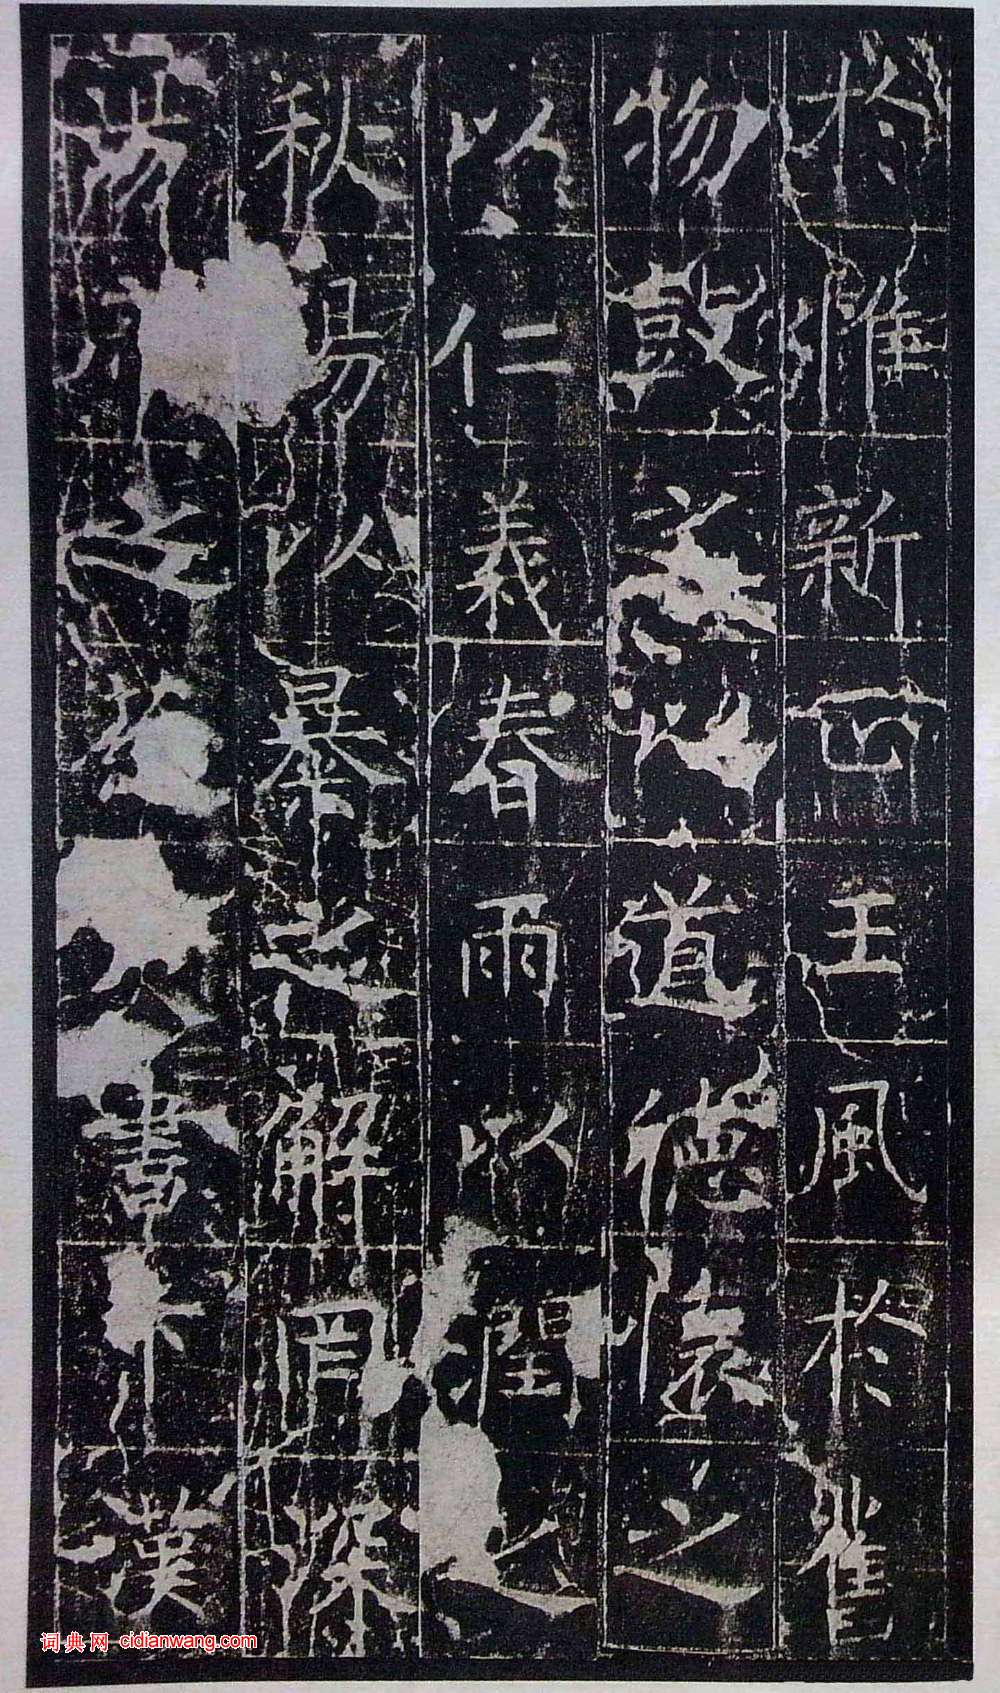 於惟新王風於舊
物鼓之以道德懷之
以仁義春雨以潤之
秋陽以暴之解罔深
湯之書下漢
词典网 cidianwang.com